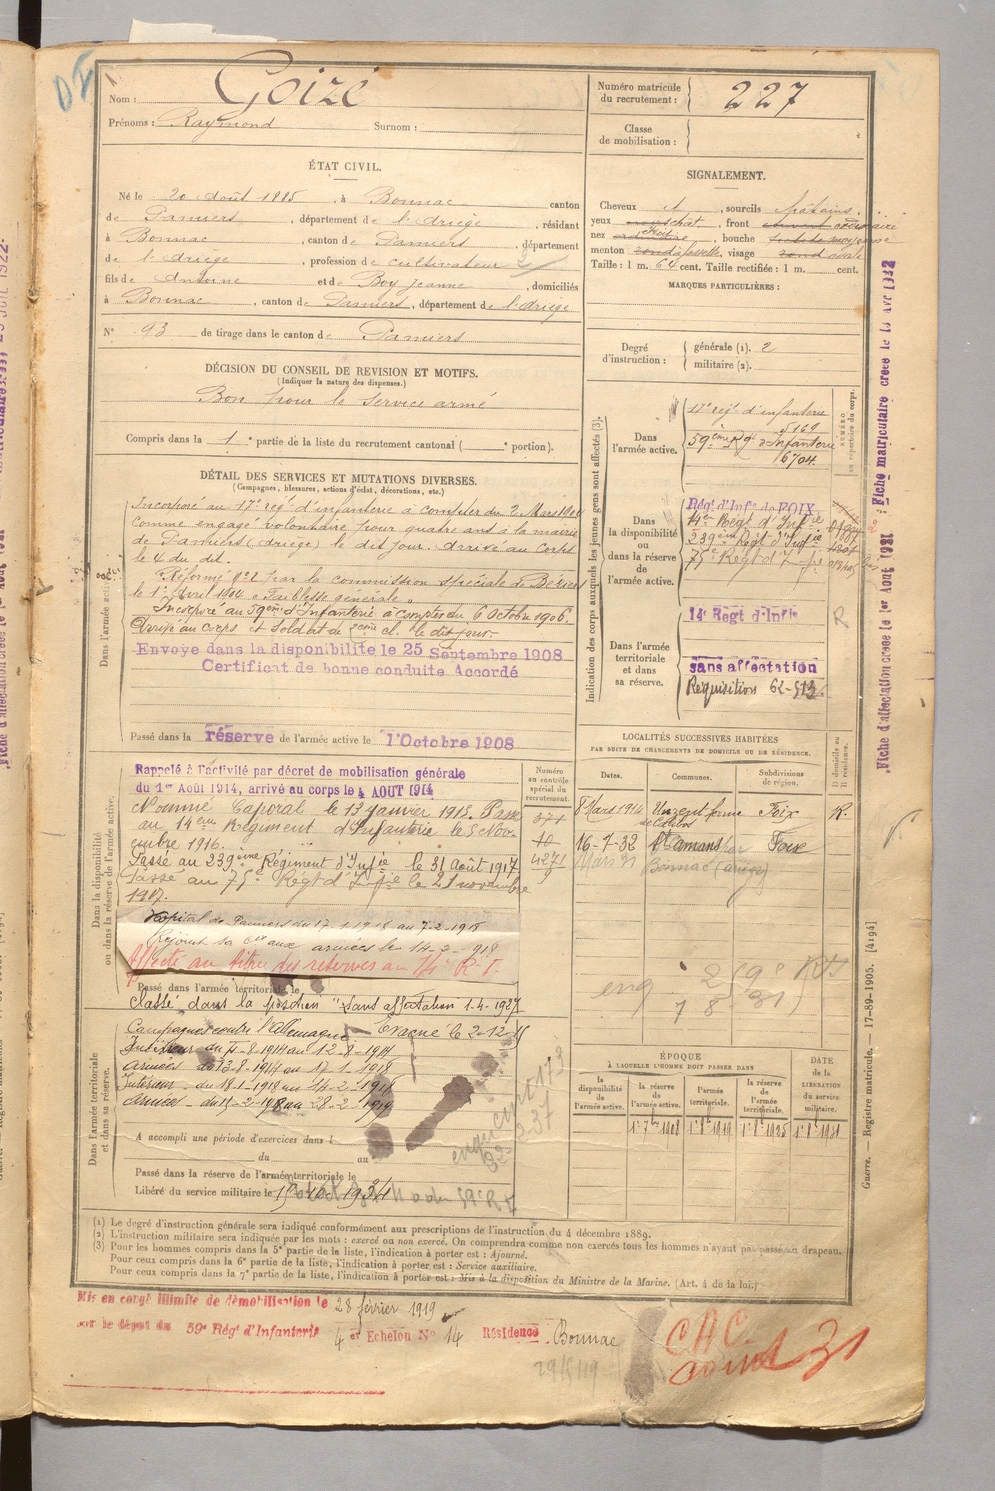 Nom : Goizé
Prénoms : Raymond Surnom :
Numéro matricule du recrutement : 227
Classe de mobilisation :
ÉTAT CIVIL.
Né le 20 Août 1885, à Bonnac canton
de Pamiers, département de l'Ariège, résidant
à Bonnac, canton de Pamiers, département
de l'Ariège, profession de cultivateur
fils de Antoine et de Boy Jeanne, domiciliés
à Bonnac, canton de Pamiers, département de l'Ariège
N° 93 de tirage dans le canton de Pamiers
SIGNALEMENT.
Cheveux , sourcils châtains.
yeux , front ordinaire
nez , bouche moyenne
menton à fossette, visage ovale
Taille : 1 m. 64 cent. Taille rectifiée : 1 m. cent.
MARQUES PARTICULIÈRES :
Degré d'instruction : générale (1). 2
militaire (2).
DÉCISION DU CONSEIL DE REVISION ET MOTIFS.
(Indiquer la nature des dispenses.)
Bon pour le service armé
Compris dans la 1e partie de la liste du recrutement cantonal ( e portion).
DÉTAIL DES SERVICES ET MUTATIONS DIVERSES.
(Campagnes, blessures, actions d'éclat, décorations, etc.)
Dans l'armée active.
Incorporé au 17e régt d'infanterie à compter du 2 Mars 1904
comme engagé volontaire pour quatre ans à la mairie
de Pamiers (Ariège) le dit jour. Arrivé au corps
le 4 du dit.
Réformé n°2 par la commission spéciale de Béziers
le 1er Avril 1904 "Faiblesse générale"
Incorporé au 59e d'Infanterie à compter du 6 Octobre 1906.
Arrivé au corps et soldat de 2ème cl. le dit jour.
Envoye dans la disponibilite le 25 Septembre 1908
Certificat de bonne conduite Accordé
Passé dans la réserve de l'armée active le 1 Octobre 1908
Indication des corps auxquels les jeunes gens sont affectés (3).
NUMÉRO au répertoire du corps.
Dans l'armée active.
17e régt d'infanterie
5169
59ème Rgt d'Infanterie
6704
Dans la disponibilité ou dans la réserve de l'armée active.
Régt d'Infie de FOIX
14e Régt d'Infie
239ème Régt d'Infie
75e Régt d'Infie
Dans l'armée territoriale et dans sa réserve.
14e Régt d'Infie
sans affectation
Requisition 62-513.
R
Dans la disponibilité ou dans la réserve de l'armée active.
Rappelé à l'activité par décret de mobilisation générale
du 1er Août 1914, arrivé au corps le 4 AOUT 1914
Nommé Caporal le 13 janvier 1915. Passé
au 14ème Régiment d'Infanterie le 5 Nov-
embre 1916.
Passé au 239ème Régiment d'Infie le 31 Août 1917
Passé au 75e Régt d'Infie le 21 novembre
1917.
Hopital de Pamiers du 17-1-1918 au 7-2-1918
Rejoint sa Cie aux armées le 14-2-918
Affecté au titre des reserves au 14e R.I.
Passé dans l'armée territoriale le
Classé dans la position "sans affectation 1-4-1927
Numéro au contrôle spécial du recrutement.
371
10
4271
9
LOCALITÉS SUCCESSIVES HABITÉES
PAR SUITE DE CHANGEMENTS DE DOMICILE OU DE RÉSIDENCE.
Dates. Communes. Subdivisions de région. D. domicile ou R. résidence.
8 Mars 1914 Unzent ferme Foix R.
16-7-32 St Amans Foix
Mars 31 Bonnac (ariège)
Dans l'armée territoriale et dans sa réserve.
Campagnes contre l'Allemagne
Intérieur du 4-8-1914 au 12-8-1914
Armées du 13-8-1914 au 17-1-1918
Intérieur du 18-1-1918 au 14-2-1918
Armées du 15-2-1918 au 28-2-1919
A accompli une période d'exercices dans l
du au
Passé dans la réserve de l'armée territoriale le
Libéré du service militaire le
ÉPOQUE
À LAQUELLE L'HOMME DOIT PASSER DANS
la disponibilité de l'armée active. la réserve de l'armée active. l'armée territoriale. la réserve de l'armée territoriale.
DATE DE LA LIBÉRATION du service militaire.
(1) Le degré d'instruction générale sera indiqué conformément aux prescriptions de l'instruction du 4 décembre 1889.
(2) L'instruction militaire sera indiquée par les mots : exercé ou non exercé. On comprendra comme non exercés tous les hommes n'ayant pas passé au drapeau.
(3) Pour les hommes compris dans la 5e partie de la liste, l'indication à porter est : Ajourné.
Pour ceux compris dans la 6e partie de la liste, l'indication à porter est : Service auxiliaire.
Pour ceux compris dans la 7e partie de la liste, l'indication à porter est : Mis à la disposition du Ministre de la Marine. (Art. 4 de la loi.)
Mis en congé illimité de démobilisation le 28 février 1919
par le dépot du 59e Régt d'Infanterie 4er Echelon N° 14 Résidence Bonnac
CAC
août 31
Guerre. — Registre matricule. — 17-89-1905. [4194]
Fiche d'affectation créée le 1er Aout 1931
Fiche matriculaire créée le